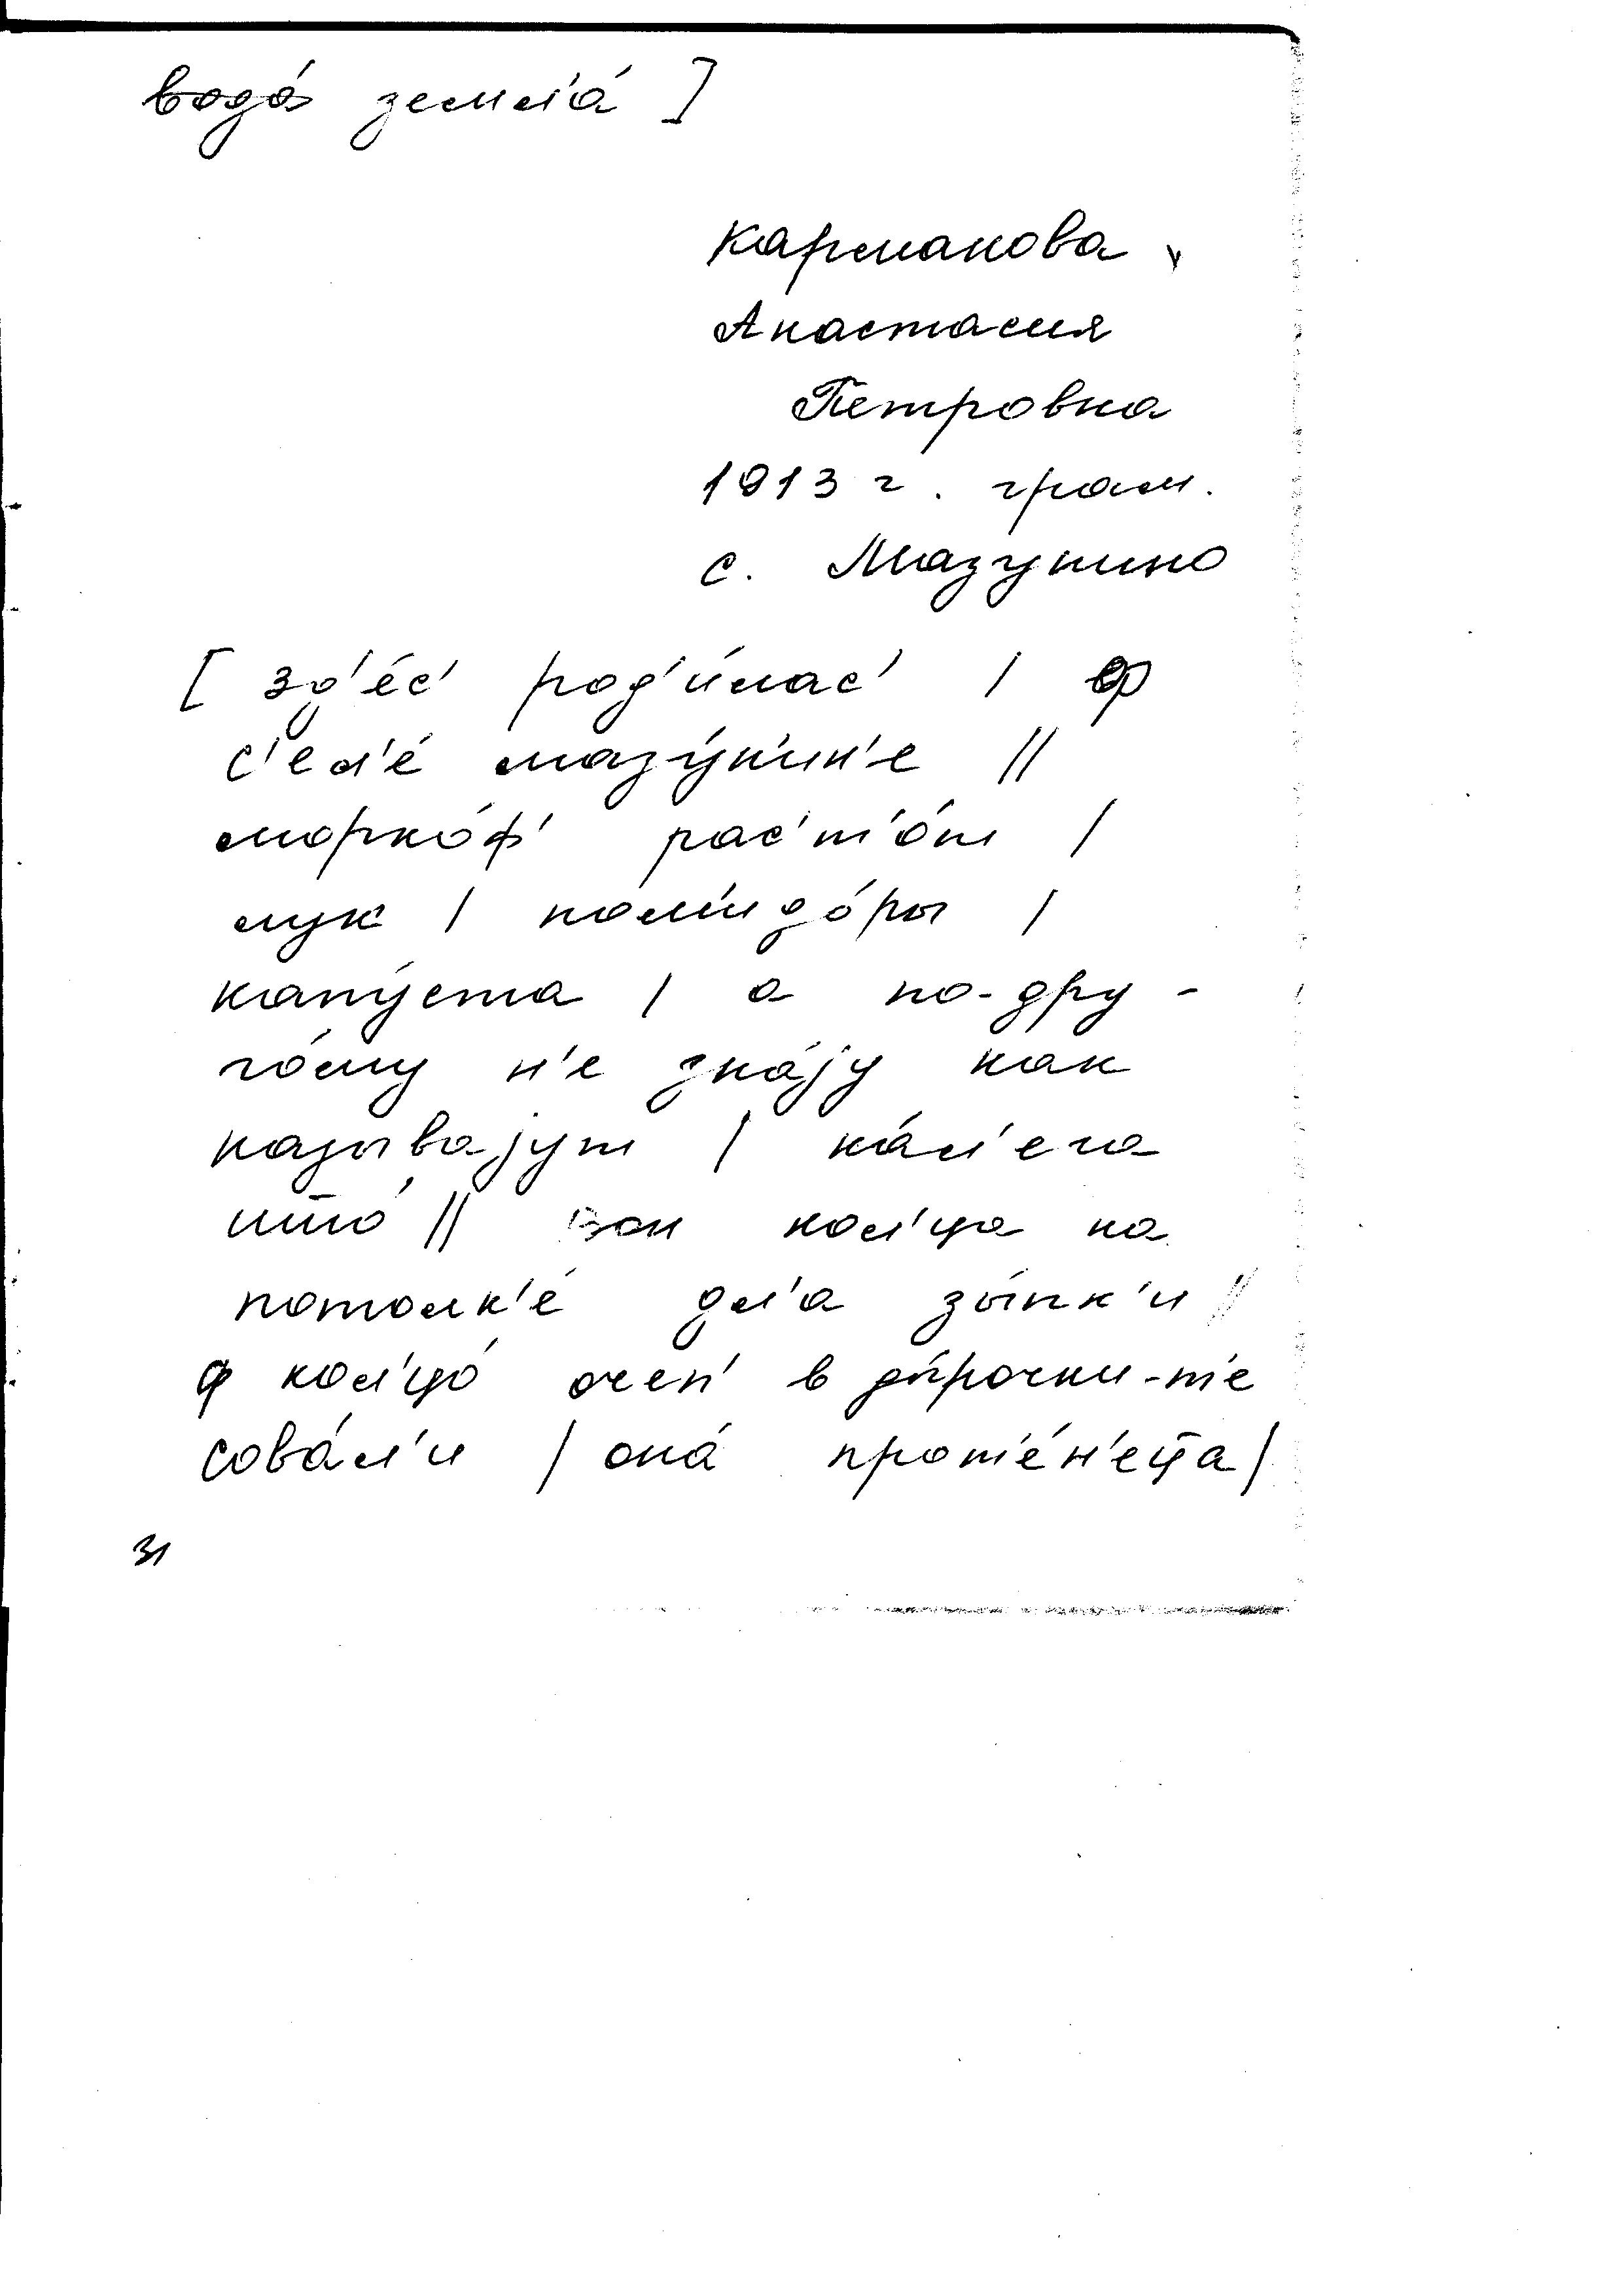 вода́ земл'а́ ]
Карманова
Анастасия
Петровна
1913 г. грам.
с. Мазунино
[ зд'е́с' род'и́лас' | ф
с'ел'е́ мазу́н'ин'е ||
морко́ф' рас'т'о́м |
лук | помидо́ры |
капу́ста | а по-дру-
го́му н'е зна́jу как
называ́jут | ка́л'ега
што́ || вон кол'ца на
потолк'е́ дл'а зы́пк'и ||
ф кол'цо́ очеп' в ды́рочки-т'е
сова́л'и | она́ прот'е́н'еца |
31